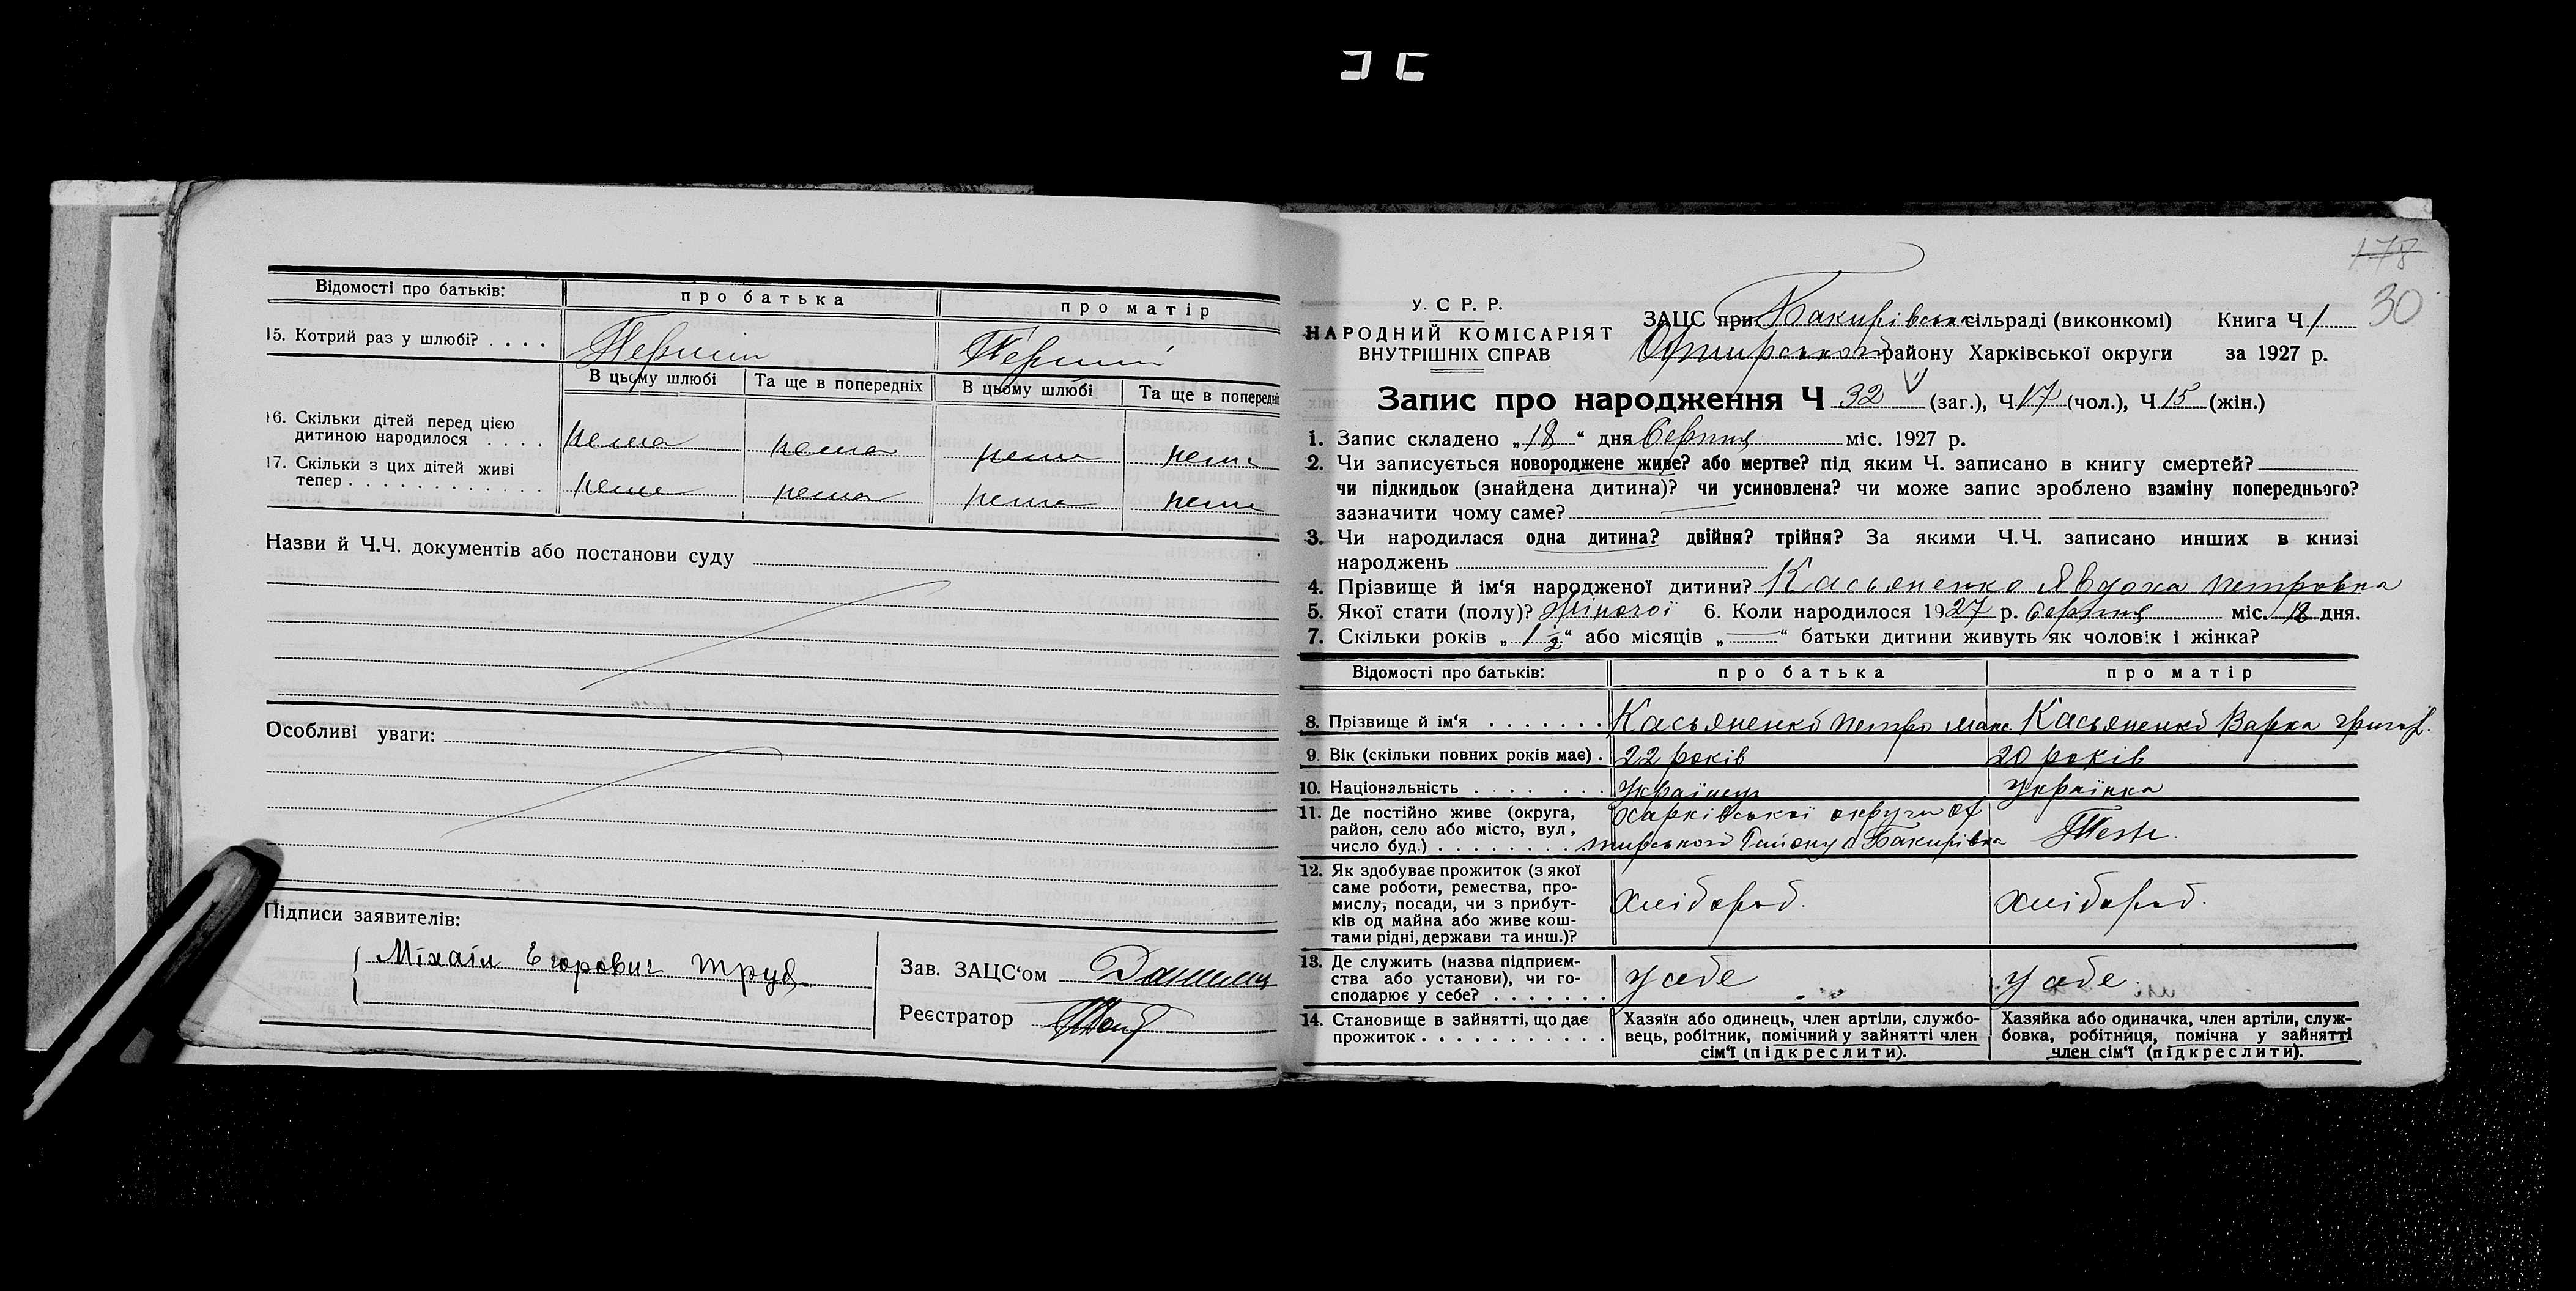 Відомості про батьків: про батька про матір
15. Котрий раз у шлюбі? . . . . Перший Перший
В цьому шлюбі Та ще в попередніх В цьому шлюбі Та ще в попередніх
16. Скільки дітей перед цією
дитиною народилося . . . . нема нема нема нема
17. Скільки з цих дітей живі
тепер . . . . . . . . . . . . нема нема нема нема
Назви й Ч.Ч. документів або постанови суду
Особливі уваги:
Підписи заявителів:
Міхаіл Егорович
Зав. ЗАЦС‘ом
Реєстратор
178
30
У. С Р. Р.
НАРОДНИЙ КОМІСАРІЯТ
ВНУТРІШНІХ СПРАВ
ЗАЦС при Бакирівськ сільраді (виконкомі) Книга Ч 1
району Харківської округи за 1927 р.
Запис про народження Ч 32 (заг.), Ч 17 (чол.), Ч 15 (жін.)
1. Запис складено „18“ дня Серпня міс. 1927 р.
2. Чи записується новороджене живе? або мертве? під яким Ч. записано в книгу смертей?
чи підкидьок (знайдена дитина)? чи усиновлена? чи може запис зроблено взаміну попереднього?
зазначити чому саме?
3. Чи народилася одна дитина? двійня? трійня? За якими Ч.Ч. записано инших в книзі
народжень
4. Прізвище й ім‘я народженої дитини? Касьяненко Явдоха Петровна
5. Якої стати (полу)? жіночої 6. Коли народилося 1927 р. серпня міс. 18 дня.
7. Скільки років „1 ½“ або місяців „—“ батьки дитини живуть як чоловік і жінка?
Відомості про батьків: про батька про матір
8. Прізвище й ім‘я . . . . . . . Касьяненко Петро Макс. Касьяненко Варка Григор.
9. Вік (скільки повних років має) . 22 років 20 років
10. Національність . . . . . . . Українець Українка
11. Де постійно живе (округа,
район, село або місто, вул,
число буд.) . . . . . . . . . Харківської округи Ох
тирського Району с Бакирівка Теж.
12. Як здобуває прожиток (з якої
саме роботи, ремества, про-
мислу, посади, чи з прибут-
ків од майна або живе кош-
тами рідні, держави та инш.)? хлібороб. хлібороб.
13. Де служить (назва підприєм-
ства або установи), чи го-
сподарює у себе? . . . . . . . у себе у себе
14. Становище в зайнятті, що дає
прожиток . . . . . . . . . . .
Хазяїн або одинець, член артіли, службо-
вець, робітник, помічний у зайнятті член
сім‘ї (підкреслити).
Хазяйка або одиначка, член артіли, служ-
бовка, робітниця, помічна у зайнятті
член сім‘ї (підкреслити).